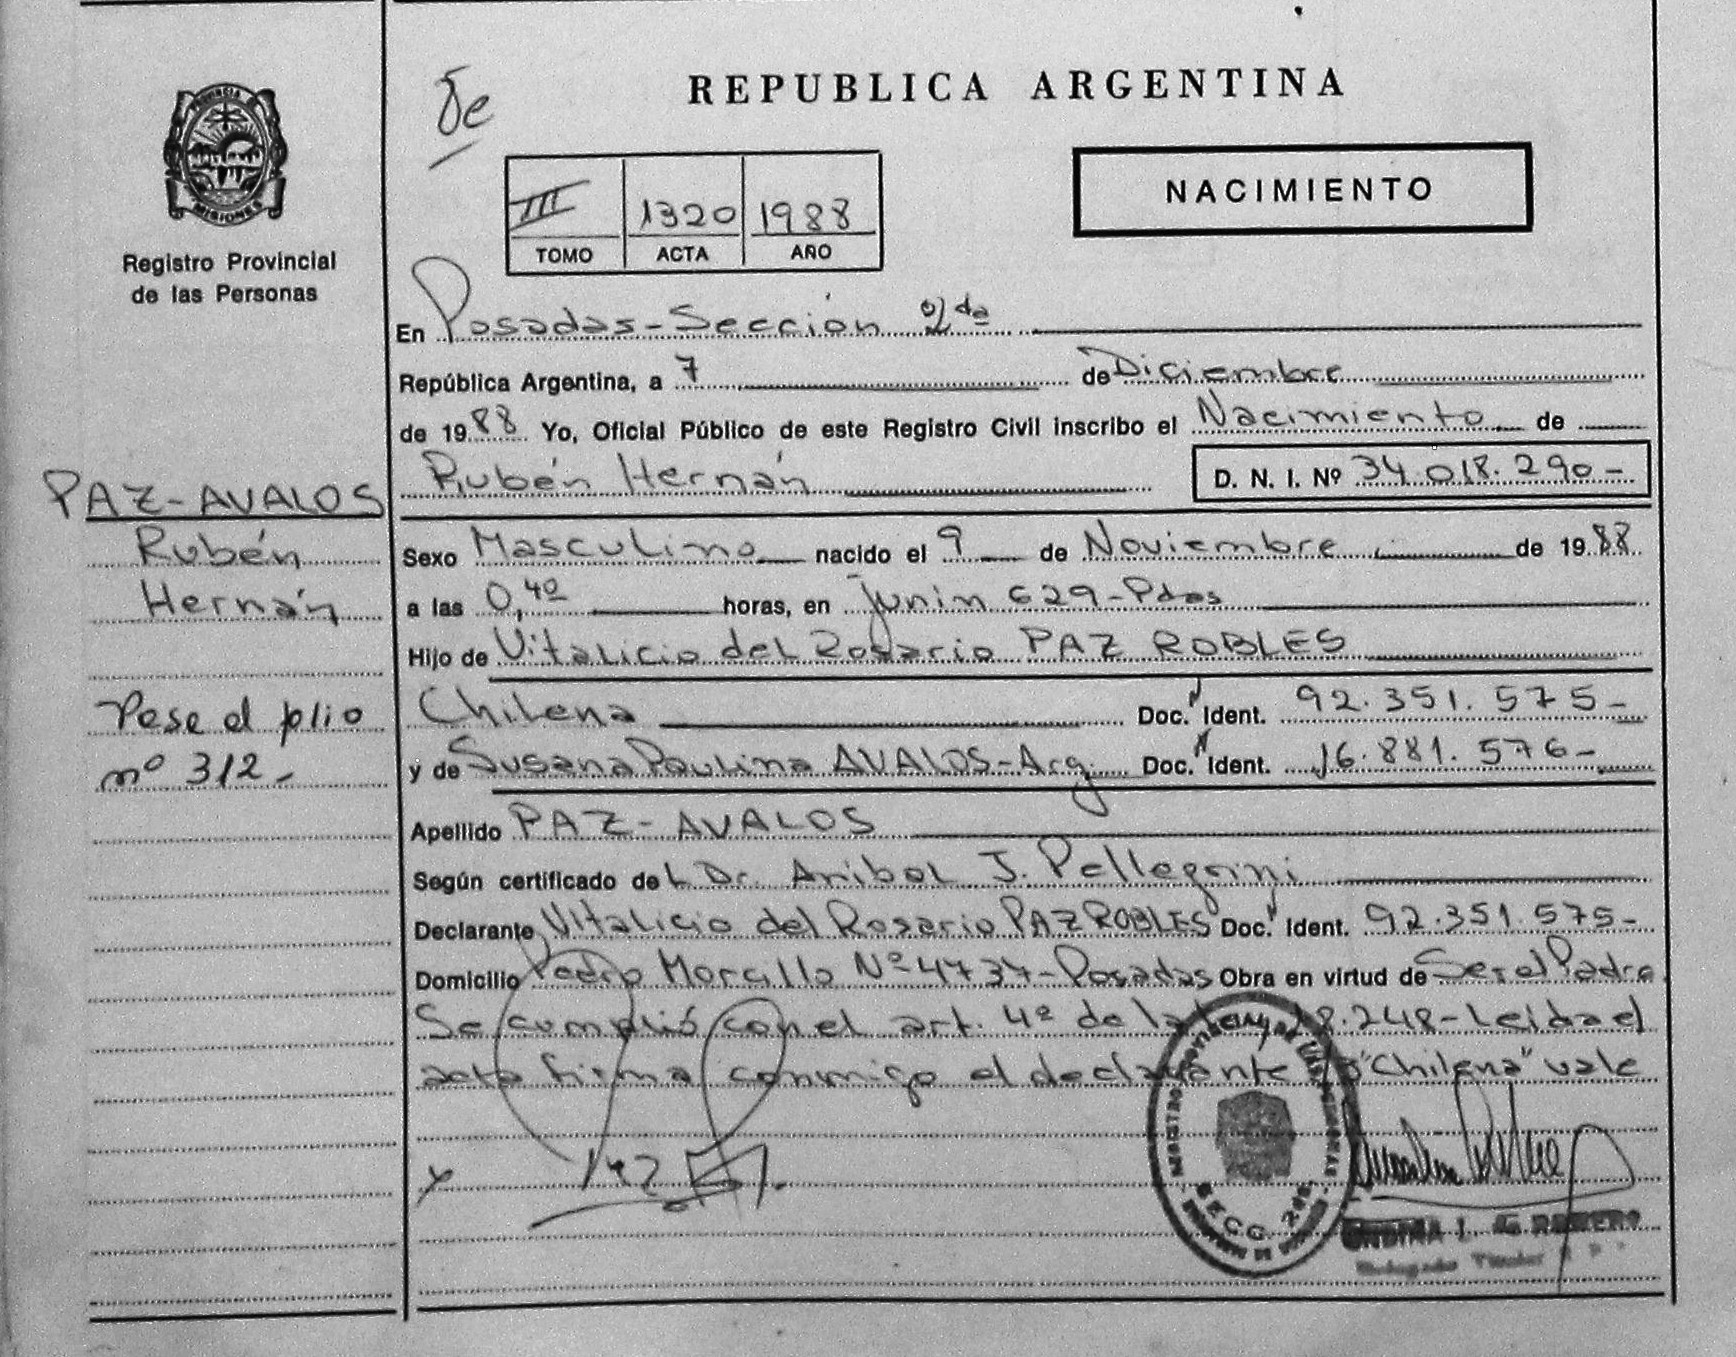 PROVINCIA DE
MISIONES
Registro Provincial
de las Personas
PAZ-AVALOS
Rubén
Hernán
Pase al folio
nº 312-
REPUBLICA ARGENTINA
NACIMIENTO
III 1320 1988
TOMO ACTA AÑO
En Posadas-Sección 2da
República Argentina, a 7 de Diciembre
de 1988 Yo, Oficial Público de este Registro Civil inscribo el Nacimiento de
Rubén Hernán D. N. I. Nº 34.018.290-
Sexo Masculino nacido el 9 de Noviembre de 1988
a las 0,40 horas, en Junin 629-Pdas
Hijo de Vitalicio del Rosario PAZ ROBLES
Chilena Doc. Ident. 92.351.575-
y de Susana Paulina AVALOS-Arg. Doc. Ident. 16.881.576-
Apellido PAZ-AVALOS
Según certificado del Dr. Anibal J. Pellegrini
Declarante Vitalicio del Rosario PAZ ROBLES Doc. Ident. 92.351.575-
Domicilio Pedro Morcillo Nº 4737-Posadas Obra en virtud de Ser el Padre
Se cumplió con el art. 4º de la 18.248-Leida el
acta firma conmigo el declarante "Chilena" vale
SECC. 2da
ROMERO
Titular